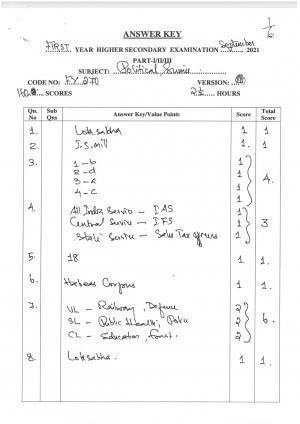 1/6
ANSWER KEY
FIRST YEAR HIGHER SECONDARY EXAMINATION September 2021
PART-I/II/III
SUBJECT: Political Science
CODE NO: FY 270 VERSION:
SCORES 2½ HOURS
Qn. No Sub Qns Answer Key/Value Points Score Total Score
1. Loksabha 1 1
2. J.S. Mill 1 1.
3. 1 - b 1
2 - d 1
3 - a 1 4.
4 - c 1
4. All India Service - IAS 1
Central Service - IFS 1 3
State Service - Sales Tax officers 1
5. 18 1 1.
6. Habeas Corpus 1 1.
7. UL - Railway, Defence 2
SL - Public Health, Police 2 6.
CL - Education, Forest. 2
8. Loksabha. 1 1.